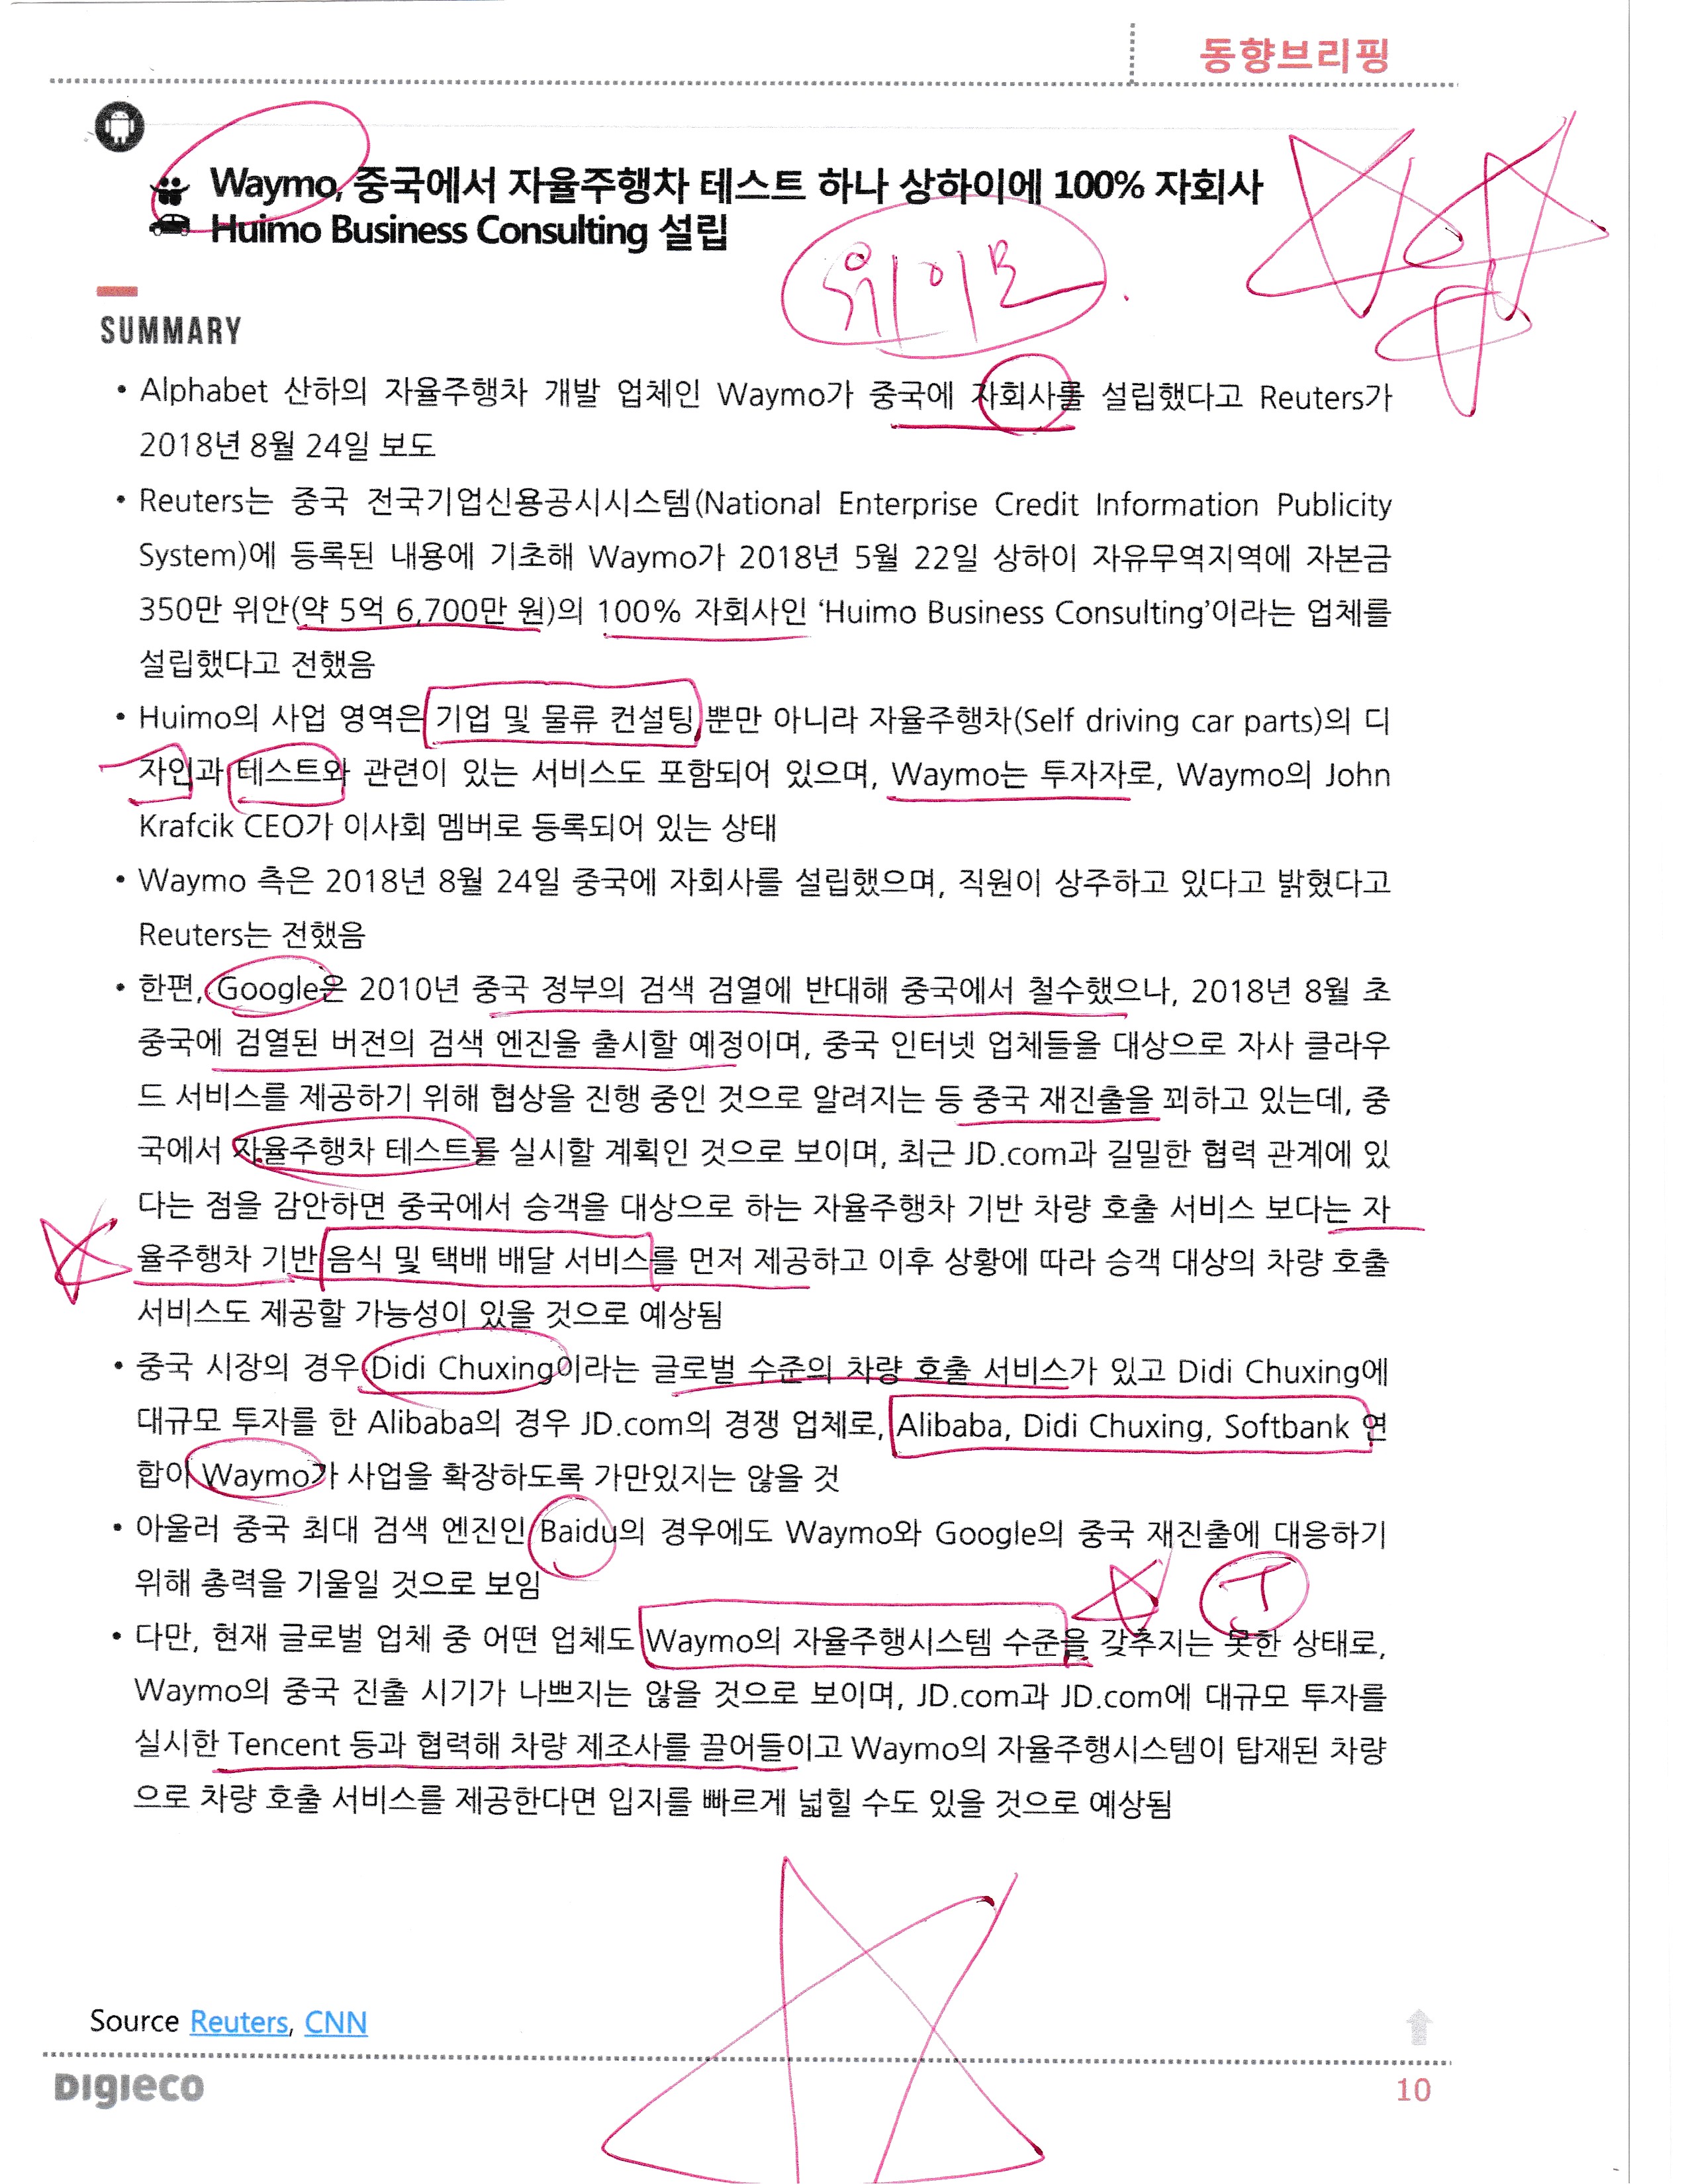 동향브리핑
Waymo, 중국에서 자율주행차 테스트 하나 상하이에 100% 자회사
Huimo Business Consulting 설립
위이모
SUMMARY
• Alphabet 산하의 자율주행차 개발 업체인 Waymo가 중국에 자회사를 설립했다고 Reuters가
2018년 8월 24일 보도
• Reuters는 중국 전국기업신용공시시스템(National Enterprise Credit Information Publicity
System)에 등록된 내용에 기초해 Waymo가 2018년 5월 22일 상하이 자유무역지역에 자본금
350만 위안(약 5억 6,700만 원)의 100% 자회사인 ‘Huimo Business Consulting’이라는 업체를
설립했다고 전했음
• Huimo의 사업 영역은 기업 및 물류 컨설팅 뿐만 아니라 자율주행차(Self driving car parts)의 디
자인과 테스트와 관련이 있는 서비스도 포함되어 있으며, Waymo는 투자자로, Waymo의 John
Krafcik CEO가 이사회 멤버로 등록되어 있는 상태
• Waymo 측은 2018년 8월 24일 중국에 자회사를 설립했으며, 직원이 상주하고 있다고 밝혔다고
Reuters는 전했음
• 한편, Google은 2010년 중국 정부의 검색 검열에 반대해 중국에서 철수했으나, 2018년 8월 초
중국에 검열된 버전의 검색 엔진을 출시할 예정이며, 중국 인터넷 업체들을 대상으로 자사 클라우
드 서비스를 제공하기 위해 협상을 진행 중인 것으로 알려지는 등 중국 재진출을 꾀하고 있는데, 중
국에서 자율주행차 테스트를 실시할 계획인 것으로 보이며, 최근 JD.com과 긴밀한 협력 관계에 있
다는 점을 감안하면 중국에서 승객을 대상으로 하는 자율주행차 기반 차량 호출 서비스 보다는 자
율주행차 기반 음식 및 택배 배달 서비스를 먼저 제공하고 이후 상황에 따라 승객 대상의 차량 호출
서비스도 제공할 가능성이 있을 것으로 예상됨
• 중국 시장의 경우 Didi Chuxing이라는 글로벌 수준의 차량 호출 서비스가 있고 Didi Chuxing에
대규모 투자를 한 Alibaba의 경우 JD.com의 경쟁 업체로, Alibaba, Didi Chuxing, Softbank 연
합이 Waymo가 사업을 확장하도록 가만있지는 않을 것
• 아울러 중국 최대 검색 엔진인 Baidu의 경우에도 Waymo와 Google의 중국 재진출에 대응하기
위해 총력을 기울일 것으로 보임
T
• 다만, 현재 글로벌 업체 중 어떤 업체도 Waymo의 자율주행시스템 수준을 갖추지는 못한 상태로,
Waymo의 중국 진출 시기가 나쁘지는 않을 것으로 보이며, JD.com과 JD.com에 대규모 투자를
실시한 Tencent 등과 협력해 차량 제조사를 끌어들이고 Waymo의 자율주행시스템이 탑재된 차량
으로 차량 호출 서비스를 제공한다면 입지를 빠르게 넓힐 수도 있을 것으로 예상됨
Source Reuters, CNN
DIGIECO
10